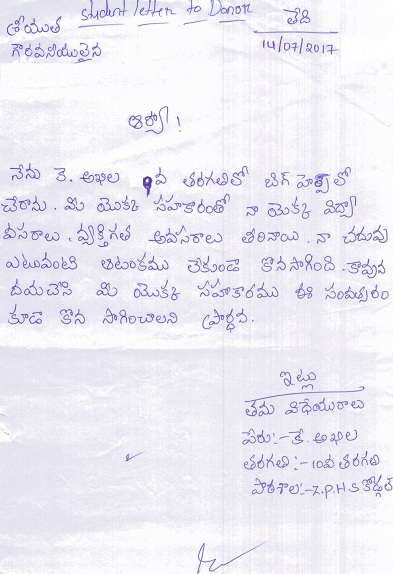 student letter to Donor
శ్రీయుత
తేది
గౌరవనీయులైన
14/07/2017
ఆర్యా!
నేను కె. అఖిల 9వ తరగతిలో బిగ్ హెల్ప్ లో
చేరాను. మీ యొక్క సహకారంతో నా యొక్క విద్యా
వసరాలు, వ్యక్తిగత అవసరాలు తీరినాయి. నా చదువు
ఎటువంటి ఆటంకము లేకుండా కొనసాగింది. కావున
దయచేసి మీ యొక్క సహకారము ఈ సంవత్సరం
కూడ కొన సాగించాలని ప్రార్ధన.
ఇట్లు
తమ విధేయురాలు
పేరు:- కే. అఖిల
తరగతి:- 10వ తరగతి
పాఠశాల:- Z.P.H.S